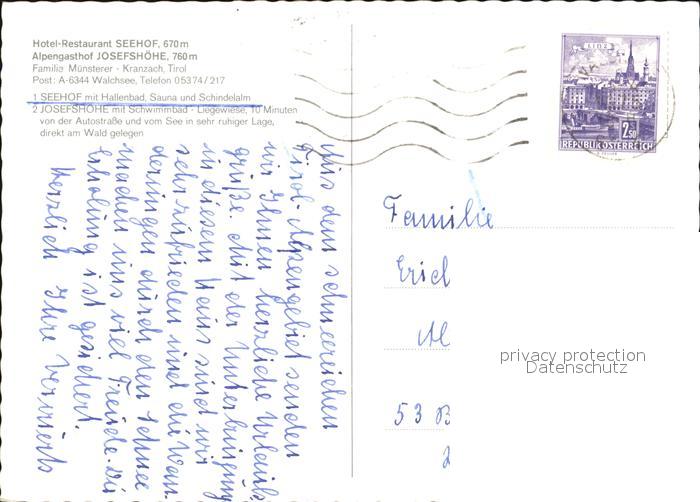 Hotel-Restaurant SEEHOF, 670m
Alpengasthof JOSEFSHÖHE, 760m
Familie Münsterer - Kranzach, Tirol
Post: A-6344 Walchsee, Telefon 05374/217
1 SEEHOF mit Hallenbad, Sauna und Schindelalm
2 JOSEFSHÖHE mit Schwimmbad - Liegewiese, 10 Minuten
von der Autostraße und vom See in sehr ruhiger Lage,
direkt am Wald gelegen
Aus dem schneereichen
Tirol-Alpengebiet senden
wir Ihnen herzliche Urlaubs
grüße. Mit der Unterbringung
in diesem Haus sind wir
sehr zufrieden und die Wan
derungen durch den Schnee
machen uns viel Freude. Die
Erholung ist gesichert.
Herzlich Ihre
LINZ
2.50
REPUBLIK ÖSTERREICH
Familie
Erich
53 B
privacy protection
Datenschutz